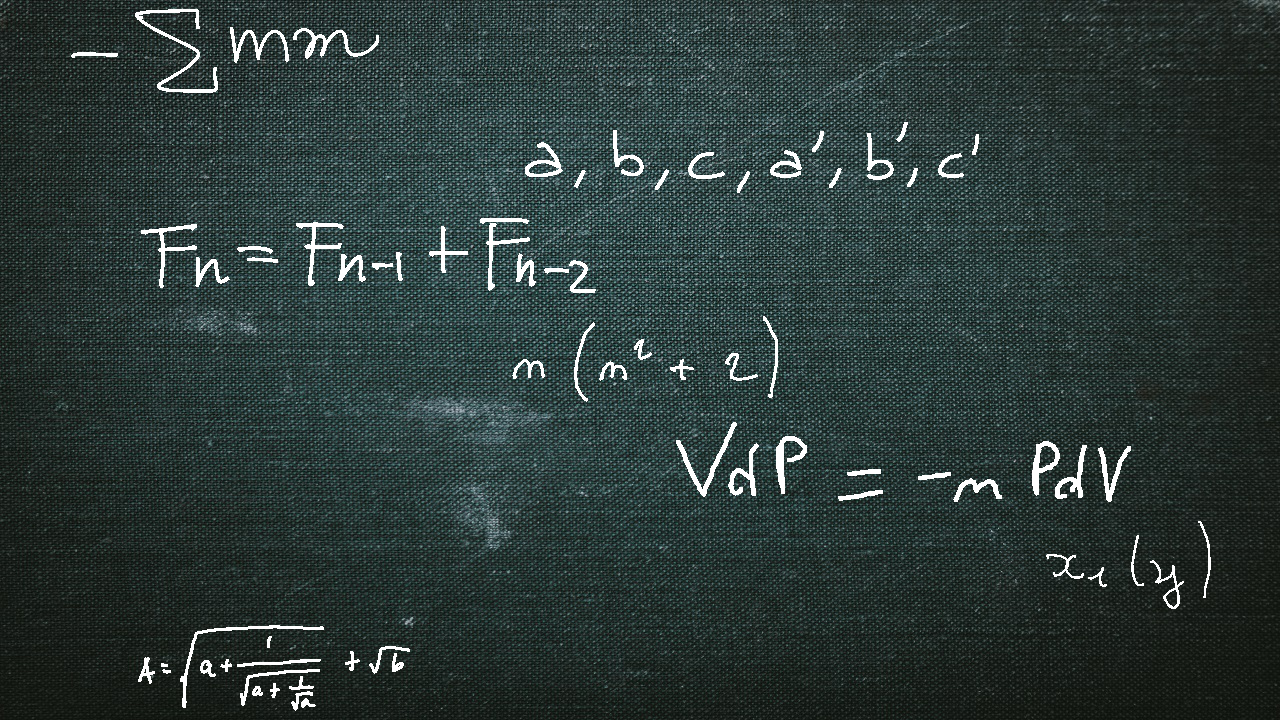 − ∑ mm
a, b, c, a′, b′, c′
Fₙ = Fₙ₋₁ + Fₙ₋₂
n (n² + 2)
VdP = −n PdV
x₁ (y)
A = √(a + 1/√(a + 1/√a)) + √b